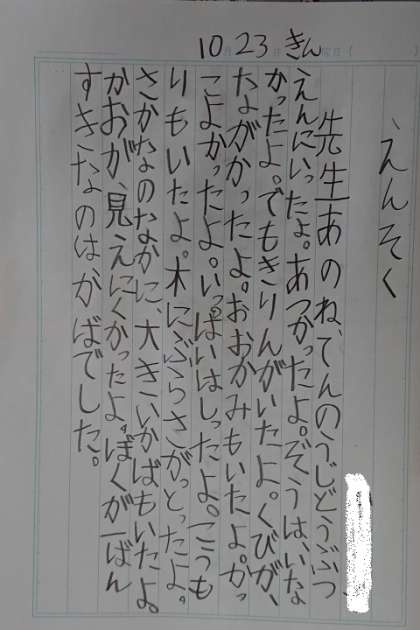 10月23日きん曜日(
えんそく
先生あのね、てんのうじどうぶつ
えんにいったよ。あつかったよ。ぞうは、いな
かったよ。でもきりんがいたよ。くびが、
ながかったよ。おおかみもいたよ。かっ
こよかったよ。いっぱいはしったよ。こうも
りもいたよ。木にぶらさがっとったよ。
さかなのなかに、大きいかばもいたよ。
かおが、見えにくかったよ。ぼくが一ばん
すきなのはかばでした。